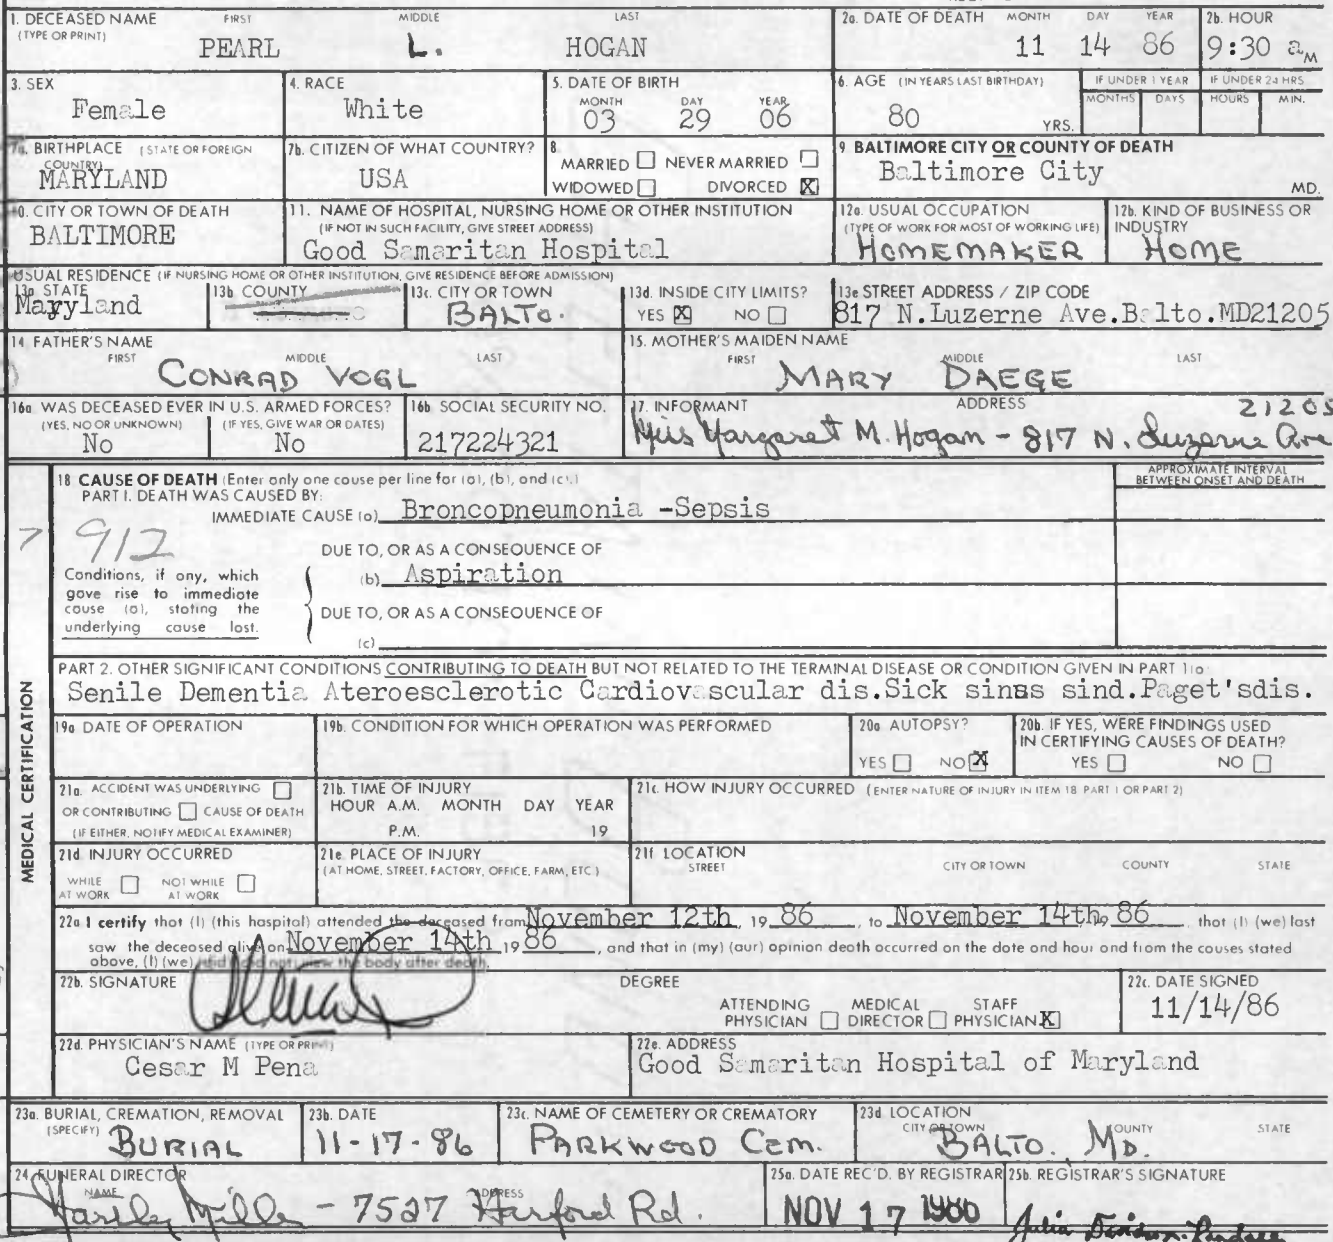 1. DECEASED NAME FIRST MIDDLE LAST
(TYPE OR PRINT)
PEARL L. HOGAN
2a. DATE OF DEATH MONTH DAY YEAR
11 14 86
2b. HOUR
9:30 a M
3. SEX
Female
4. RACE
White
5. DATE OF BIRTH
MONTH DAY YEAR
03 29 06
6. AGE (IN YEARS LAST BIRTHDAY)
80 YRS.
IF UNDER 1 YEAR
MONTHS DAYS
IF UNDER 24 HRS
HOURS MIN.
7a. BIRTHPLACE (STATE OR FOREIGN
COUNTRY)
MARYLAND
7b. CITIZEN OF WHAT COUNTRY?
USA
8.
MARRIED NEVER MARRIED
WIDOWED DIVORCED X
9. BALTIMORE CITY OR COUNTY OF DEATH
Baltimore City
MD.
10. CITY OR TOWN OF DEATH
BALTIMORE
11. NAME OF HOSPITAL, NURSING HOME OR OTHER INSTITUTION
(IF NOT IN SUCH FACILITY, GIVE STREET ADDRESS)
Good Samaritan Hospital
12a. USUAL OCCUPATION
(TYPE OF WORK FOR MOST OF WORKING LIFE)
HOMEMAKER
12b. KIND OF BUSINESS OR
INDUSTRY
HOME
USUAL RESIDENCE (IF NURSING HOME OR OTHER INSTITUTION, GIVE RESIDENCE BEFORE ADMISSION)
13a STATE
Maryland
13b COUNTY
13c. CITY OR TOWN
BALTO.
13d. INSIDE CITY LIMITS?
YES X NO
13e STREET ADDRESS / ZIP CODE
817 N.Luzerne Ave.Balto.MD21205
14. FATHER'S NAME
FIRST MIDDLE LAST
CONRAD VOGL
15. MOTHER'S MAIDEN NAME
FIRST MIDDLE LAST
MARY DAEGE
16a WAS DECEASED EVER IN U.S. ARMED FORCES?
(YES, NO OR UNKNOWN) (IF YES, GIVE WAR OR DATES)
No No
16b SOCIAL SECURITY NO.
217224321
17. INFORMANT ADDRESS
21205
Miss Margaret M. Hogan - 817 N. Luzerne Ave
MEDICAL CERTIFICATION
18 CAUSE OF DEATH (Enter only one cause per line for (a), (b), and (c).)
APPROXIMATE INTERVAL
BETWEEN ONSET AND DEATH
PART I. DEATH WAS CAUSED BY:
IMMEDIATE CAUSE (a) Broncopneumonia -Sepsis
7 912
DUE TO, OR AS A CONSEQUENCE OF
(b) Aspiration
Conditions, if any, which
gave rise to immediate
cause (a), stating the
underlying cause last.
DUE TO, OR AS A CONSEQUENCE OF
(c)
PART 2. OTHER SIGNIFICANT CONDITIONS CONTRIBUTING TO DEATH BUT NOT RELATED TO THE TERMINAL DISEASE OR CONDITION GIVEN IN PART 1(a)
Senile Dementia Ateroesclerotic Cardiovascular dis.Sick sinus sind.Paget'sdis.
19a DATE OF OPERATION
19b. CONDITION FOR WHICH OPERATION WAS PERFORMED
20a AUTOPSY?
YES NO X
20b. IF YES, WERE FINDINGS USED
IN CERTIFYING CAUSES OF DEATH?
YES NO
21a. ACCIDENT WAS UNDERLYING
OR CONTRIBUTING CAUSE OF DEATH
(IF EITHER, NOTIFY MEDICAL EXAMINER)
21b. TIME OF INJURY
HOUR A.M. MONTH DAY YEAR
P.M. 19
21c. HOW INJURY OCCURRED (ENTER NATURE OF INJURY IN ITEM 18 PART 1 OR PART 2)
21d INJURY OCCURRED
WHILE AT WORK NOT WHILE AT WORK
21e. PLACE OF INJURY
(AT HOME, STREET, FACTORY, OFFICE, FARM, ETC.)
21f LOCATION
STREET CITY OR TOWN COUNTY STATE
22a I certify that (I) (this hospital) attended the deceased from November 12th, 19 86, to November 14th, 19 86, that (I) (we) last
saw the deceased alive on November 14th 19 86, and that in (my) (our) opinion death occurred on the date and hour and from the causes stated
above, (I) (we) did did not view the body after death.
22b. SIGNATURE
DEGREE
ATTENDING PHYSICIAN MEDICAL DIRECTOR STAFF PHYSICIAN X
22c. DATE SIGNED
11/14/86
22d. PHYSICIAN'S NAME (TYPE OR PRINT)
Cesar M Pena
22e. ADDRESS
Good Samaritan Hospital of Maryland
23a. BURIAL, CREMATION, REMOVAL
(SPECIFY) BURIAL
23b. DATE
11-17-86
23c. NAME OF CEMETERY OR CREMATORY
PARKWOOD CEM.
23d LOCATION
CITY OR TOWN COUNTY STATE
BALTO. MD.
24 FUNERAL DIRECTOR
NAME ADDRESS
Hartley Miller - 7527 Harford Rd.
25a. DATE REC'D. BY REGISTRAR
NOV 17 1986
25b. REGISTRAR'S SIGNATURE
Julia Davidson-Randall